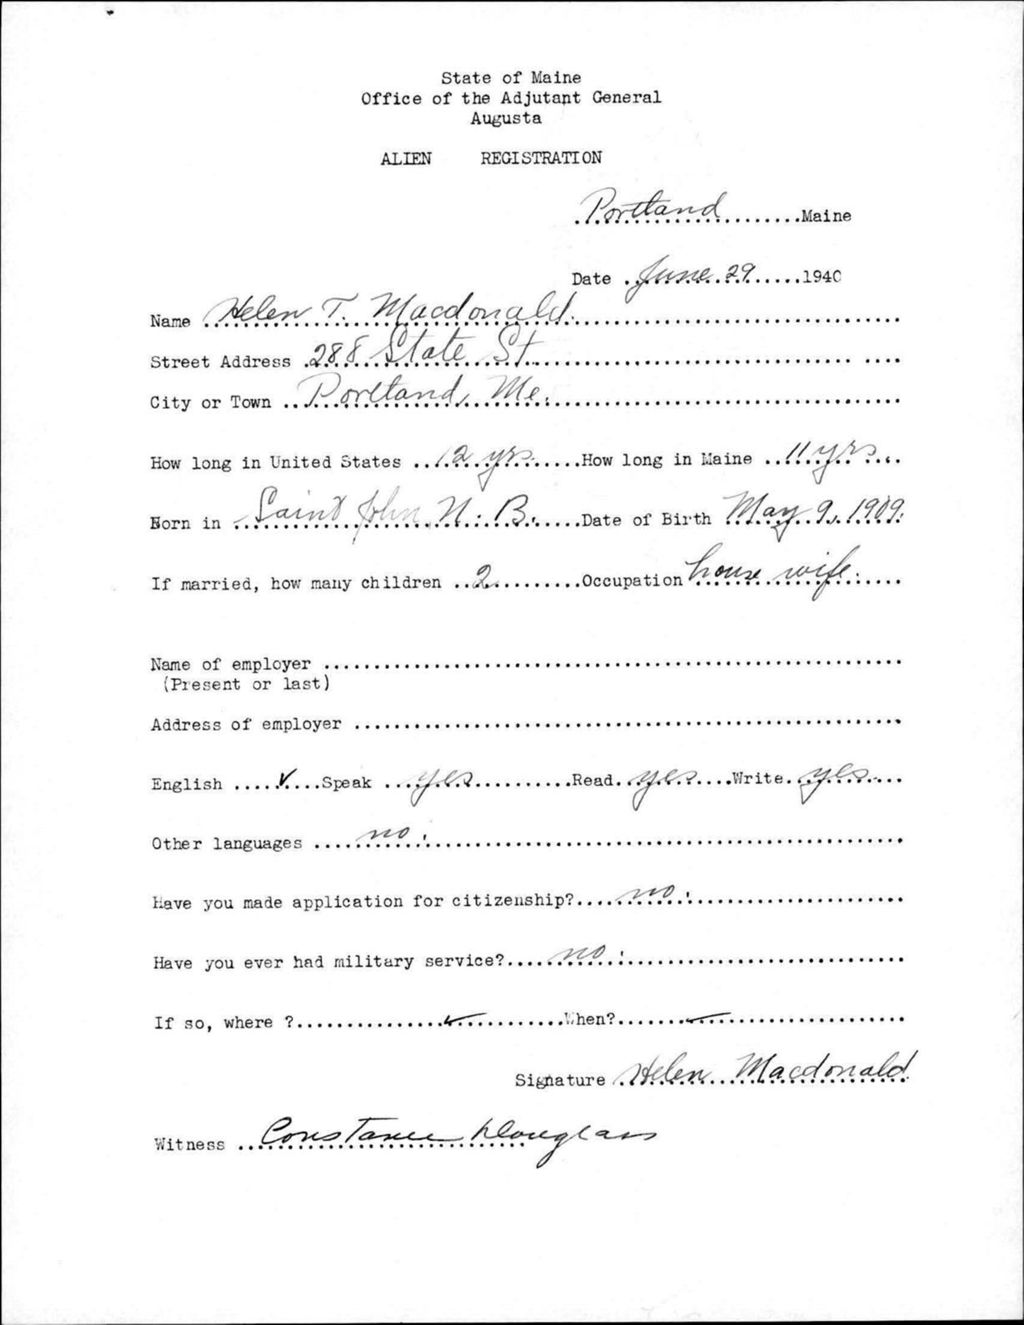 State of Maine
Office of the Adjutant General
Augusta
ALIEN REGISTRATION
Portland Maine
Date June 29 1940
Name Helen T. Macdonald.
Street Address 288 State St.
City or Town Portland, Me.
How long in United States 12 yrs. How long in Maine 11 yrs.
Born in Saint John, N. B. Date of Birth May 9, 1909.
If married, how many children 2 Occupation house wife.
Name of employer
(Present or last)
Address of employer
English ✓ Speak yes Read yes Write yes
Other languages no.
Have you made application for citizenship? no.
Have you ever had military service? no.
If so, where ? ✓ When? ✓
Signature Helen Macdonald
Witness Constance Douglass